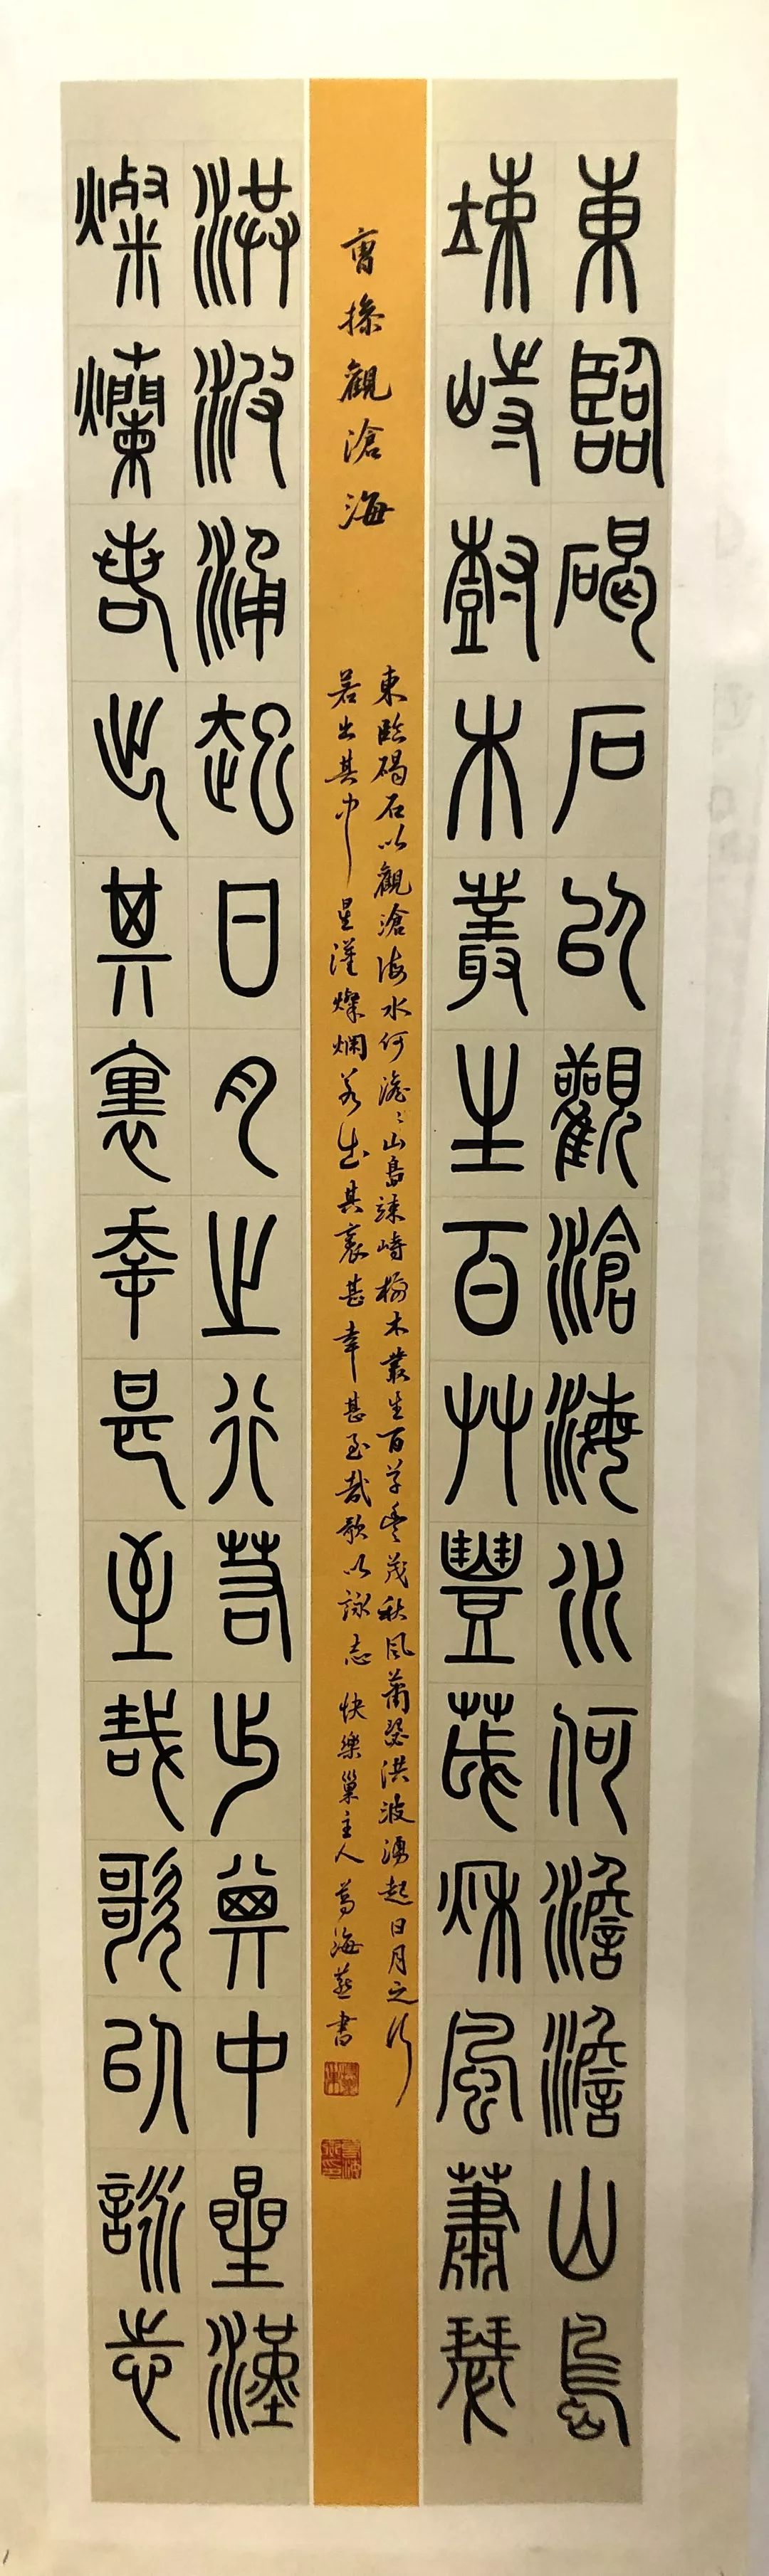 東臨碣石以觀滄海水何澹澹山島
竦峙樹木叢生百艸豐茂秋風蕭瑟
曹操觀滄海
東臨碣石以觀滄海水何澹〻山島竦峙樹木叢生百草豐茂秋風蕭瑟洪波湧起日月之行
若出其中星漢燦爛若出其裏甚幸甚至哉歌以詠志 快樂巢主人葛海燕書
洪波涌起日月之行若出其中星漢
燦爛若出其裏幸甚至哉歌以詠志